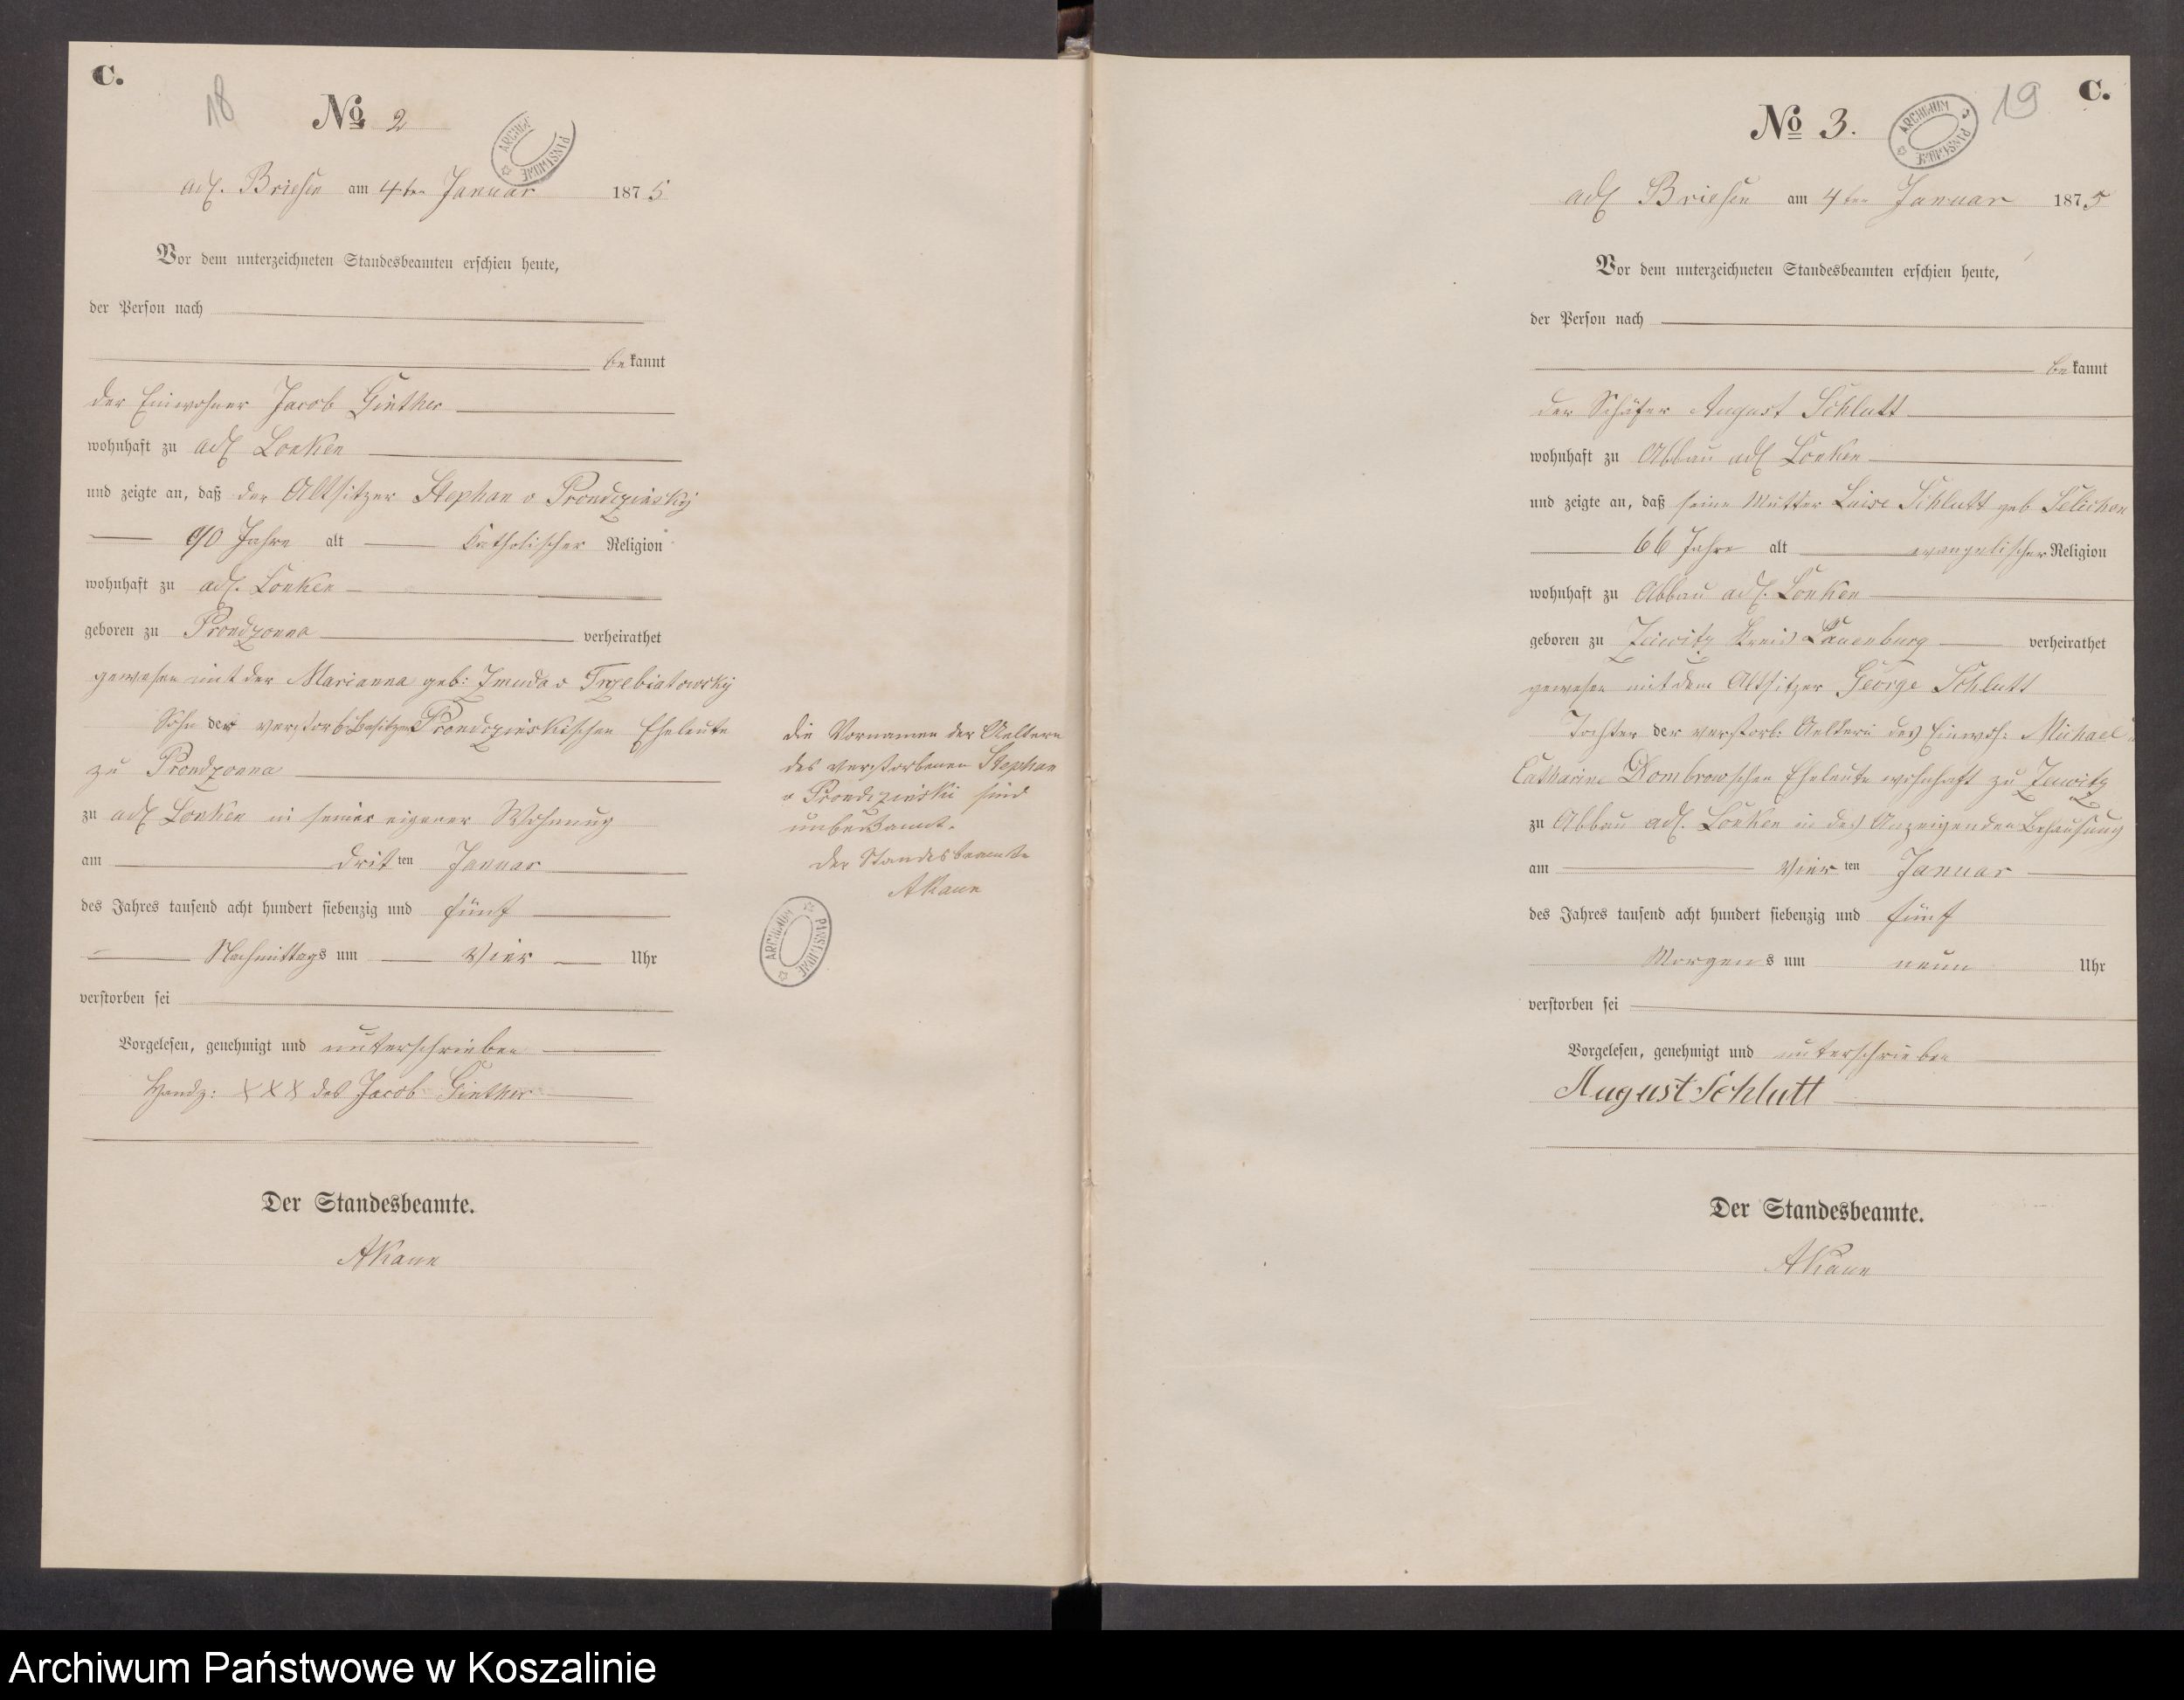 C.
18
No 2
ARCHIWUM PAŃSTWOWE
adl. Briesen am 4ten Januar 1875
Vor dem unterzeichneten Standesbeamten erschien heute,
der Person nach
bekannt
der Einwohner Jacob Ginther
wohnhaft zu adl Lonken
und zeigte an, daß der Altsitzer Stephan v Prondzinsky
90 Jahre alt katholischer Religion
wohnhaft zu adl. Lonken
geboren zu Prondzonna verheirathet
gewesen mit der Marianna geb: Jmuda v Trzebiatowsky
Sohn der verstorb Besitzer Prondzinskischen Eheleute
zu Prondzonna
zu adl Lonken in seiner eigener Wohnung
am dritten Januar
des Jahres tausend acht hundert siebenzig und fünf
Nachmittags um vier Uhr
verstorben sei
Vorgelesen, genehmigt und unterschrieben
Handz: XXX des Jacob Ginther
Der Standesbeamte.
AKann
die Vornamen der Aeltern
des verstorbenen Stephan
v Prondzinski sind
unbekannt.
Der Standesbeamte
AKann
ARCHIWUM PAŃSTWOWE
C.
19
No 3.
ARCHIWUM PAŃSTWOWE
adl Briesen am 4ten Januar 1875
Vor dem unterzeichneten Standesbeamten erschien heute,
der Person nach
bekannt
der Schäfer August Schlutt
wohnhaft zu Abbau adl Lonken
und zeigte an, daß seine Mutter Luise Schlutt geb
66 Jahre alt evangelischer Religion
wohnhaft zu Abbau adl. Lonken
geboren zu Zewitz Kreis Lauenburg verheirathet
gewesen mit dem Altsitzer George Schlutt
Tochter der verstorb: Aeltern des Einwoh: Michael
Catharine Dombrowschen Eheleute wohnhaft zu Zewitz
zu Abbau adl. Lonken in des Anzeigenden Behausung
am vierten Januar
des Jahres tausend acht hundert siebenzig und fünf
Morgens um neun Uhr
verstorben sei
Vorgelesen, genehmigt und unterschrieben
August Schlutt
Der Standesbeamte.
AKann
Archiwum Państwowe w Koszalinie